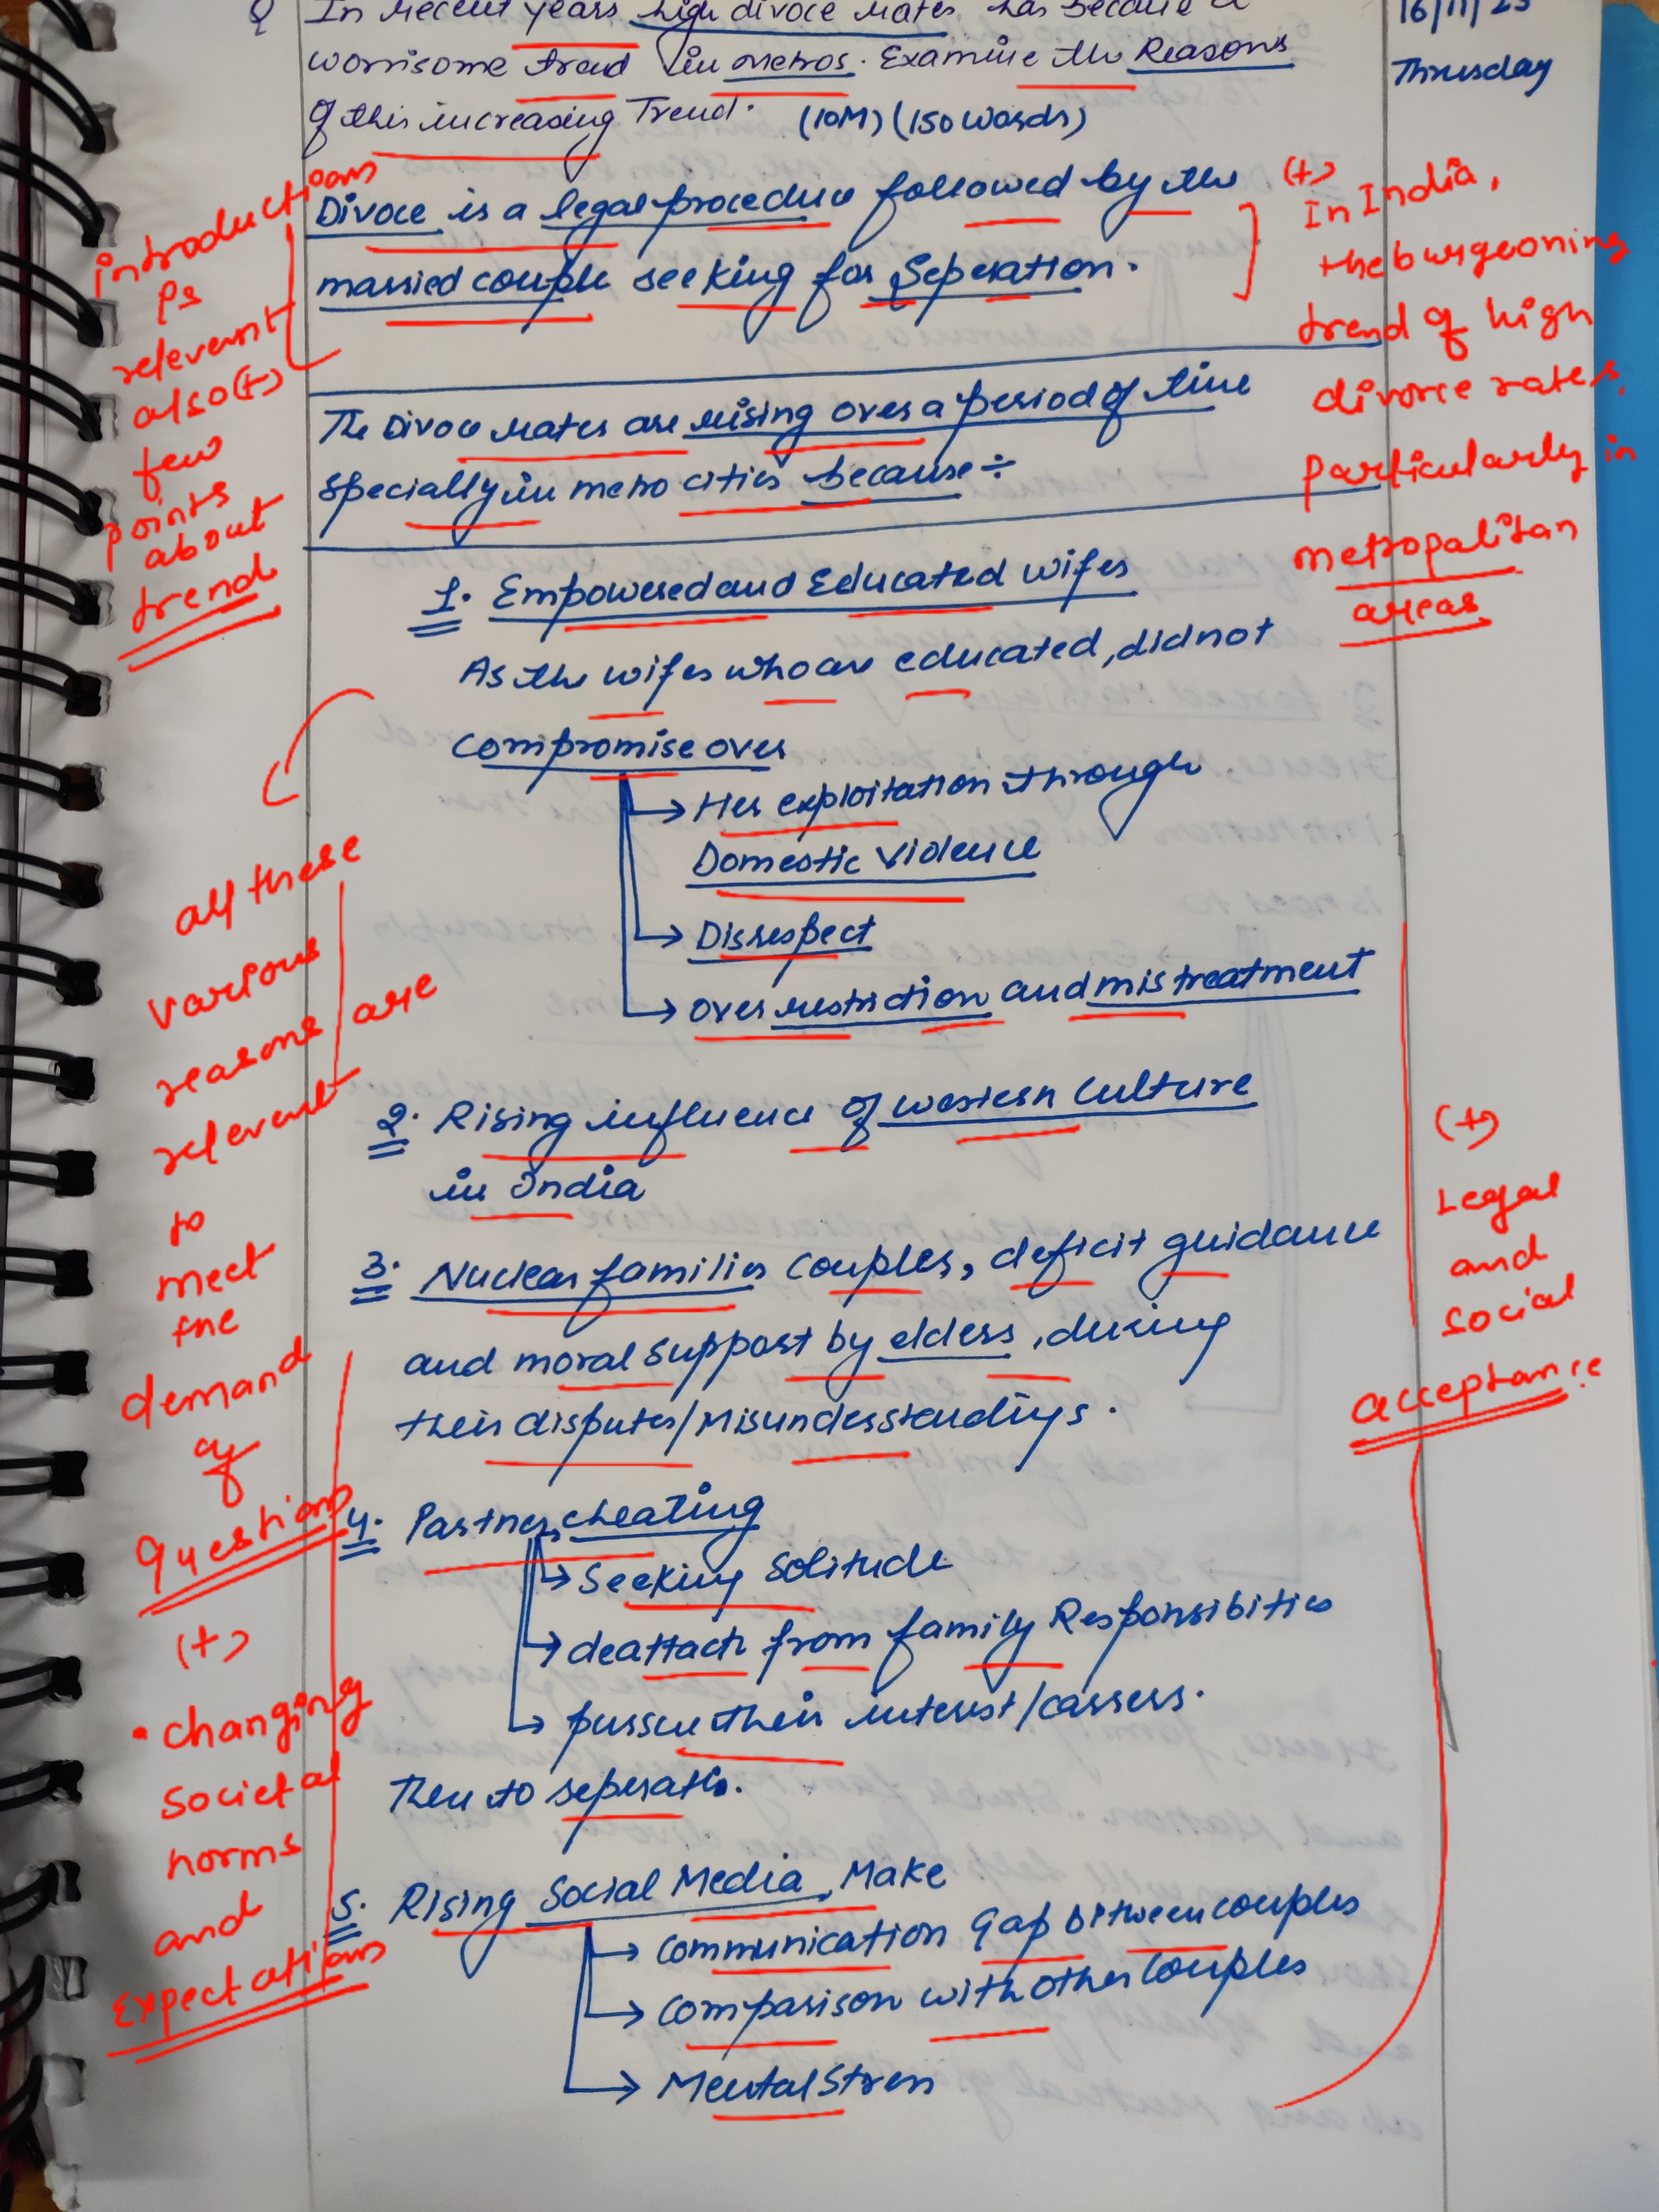 Q In recent years high divoce rates has become a
worrisome trend in metros. Examine the Reasons
of this increasing Trend. (10M) (150 words)
16/11/23
Thrusday
Divoce is a legal procedure followed by the
married couple seeking for Seperation.
The Divoce rates are rising over a period of time
specially in metro cities because ÷
1. Empowered and Educated wifes
As the wifes who are educated, did not
compromise over
→ Her exploitation through
Domestic Violence
→ Disrespect
→ over restriction and mistreatment
2. Rising influence of western Culture
in India
3. Nuclear families couples, deficit guidance
and moral support by elders, during
their disputes/Misunderstandings.
4. Partner cheating
→ Seeking Solitude
→ deattach from family Responsibities
→ pursue their interest/carrers.
Then to seperatn.
5. Rising Social Media, Make
→ Communication Gap between couples
→ Comparison with other Couples
→ Mental Stress
introductions
is
relevent
also (+)
few
points
about
trend
all these
various
reasons are
relevent
to
meet
the
demand
of
Questions
(+)
• Changing
Societal
norms
and
Expectations
(+)
In India,
the burgeoning
trend of high
divorce rates,
particularly in
metropalitan
areas
(+)
Legal
and
Social
acceptance